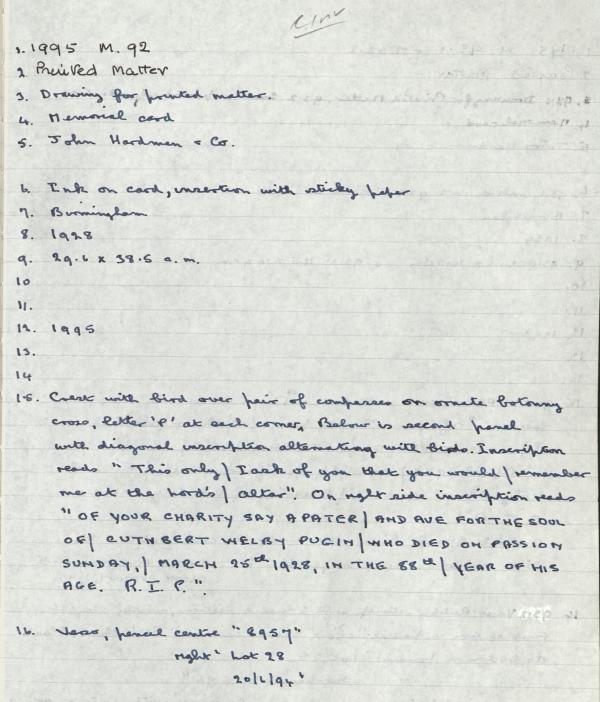 1. 1995 M. 92
2. Printed Matter
3. Drawing for printed matter.
4. Memorial card
5. John Hardman & Co.
6. Ink on card, insertion with sticky paper
7. Birmingham
8. 1928
9. 29.6 x 38.5 c.m.
10
11.
12. 1995
13.
14
15. Crest with bird over pair of compasses on ornate botonny
cross, letter 'P' at each corner. Below is second panel
with diagonal inscription alternating with birds. Inscription
reads " This only / I ask of you that you would / remember
me at the Lord's / altar". On right side inscription reads
" OF YOUR CHARITY SAY A PATER / AND AVE FOR THE SOUL
OF / CUTHBERT WELBY PUGIN / WHO DIED ON PASSION
SUNDAY, / MARCH 25th 1928, IN THE 88th / YEAR OF HIS
AGE. R. I. P.".
16. Verso, pencil centre " 8957"
right " Lot 28
20/6/94 "